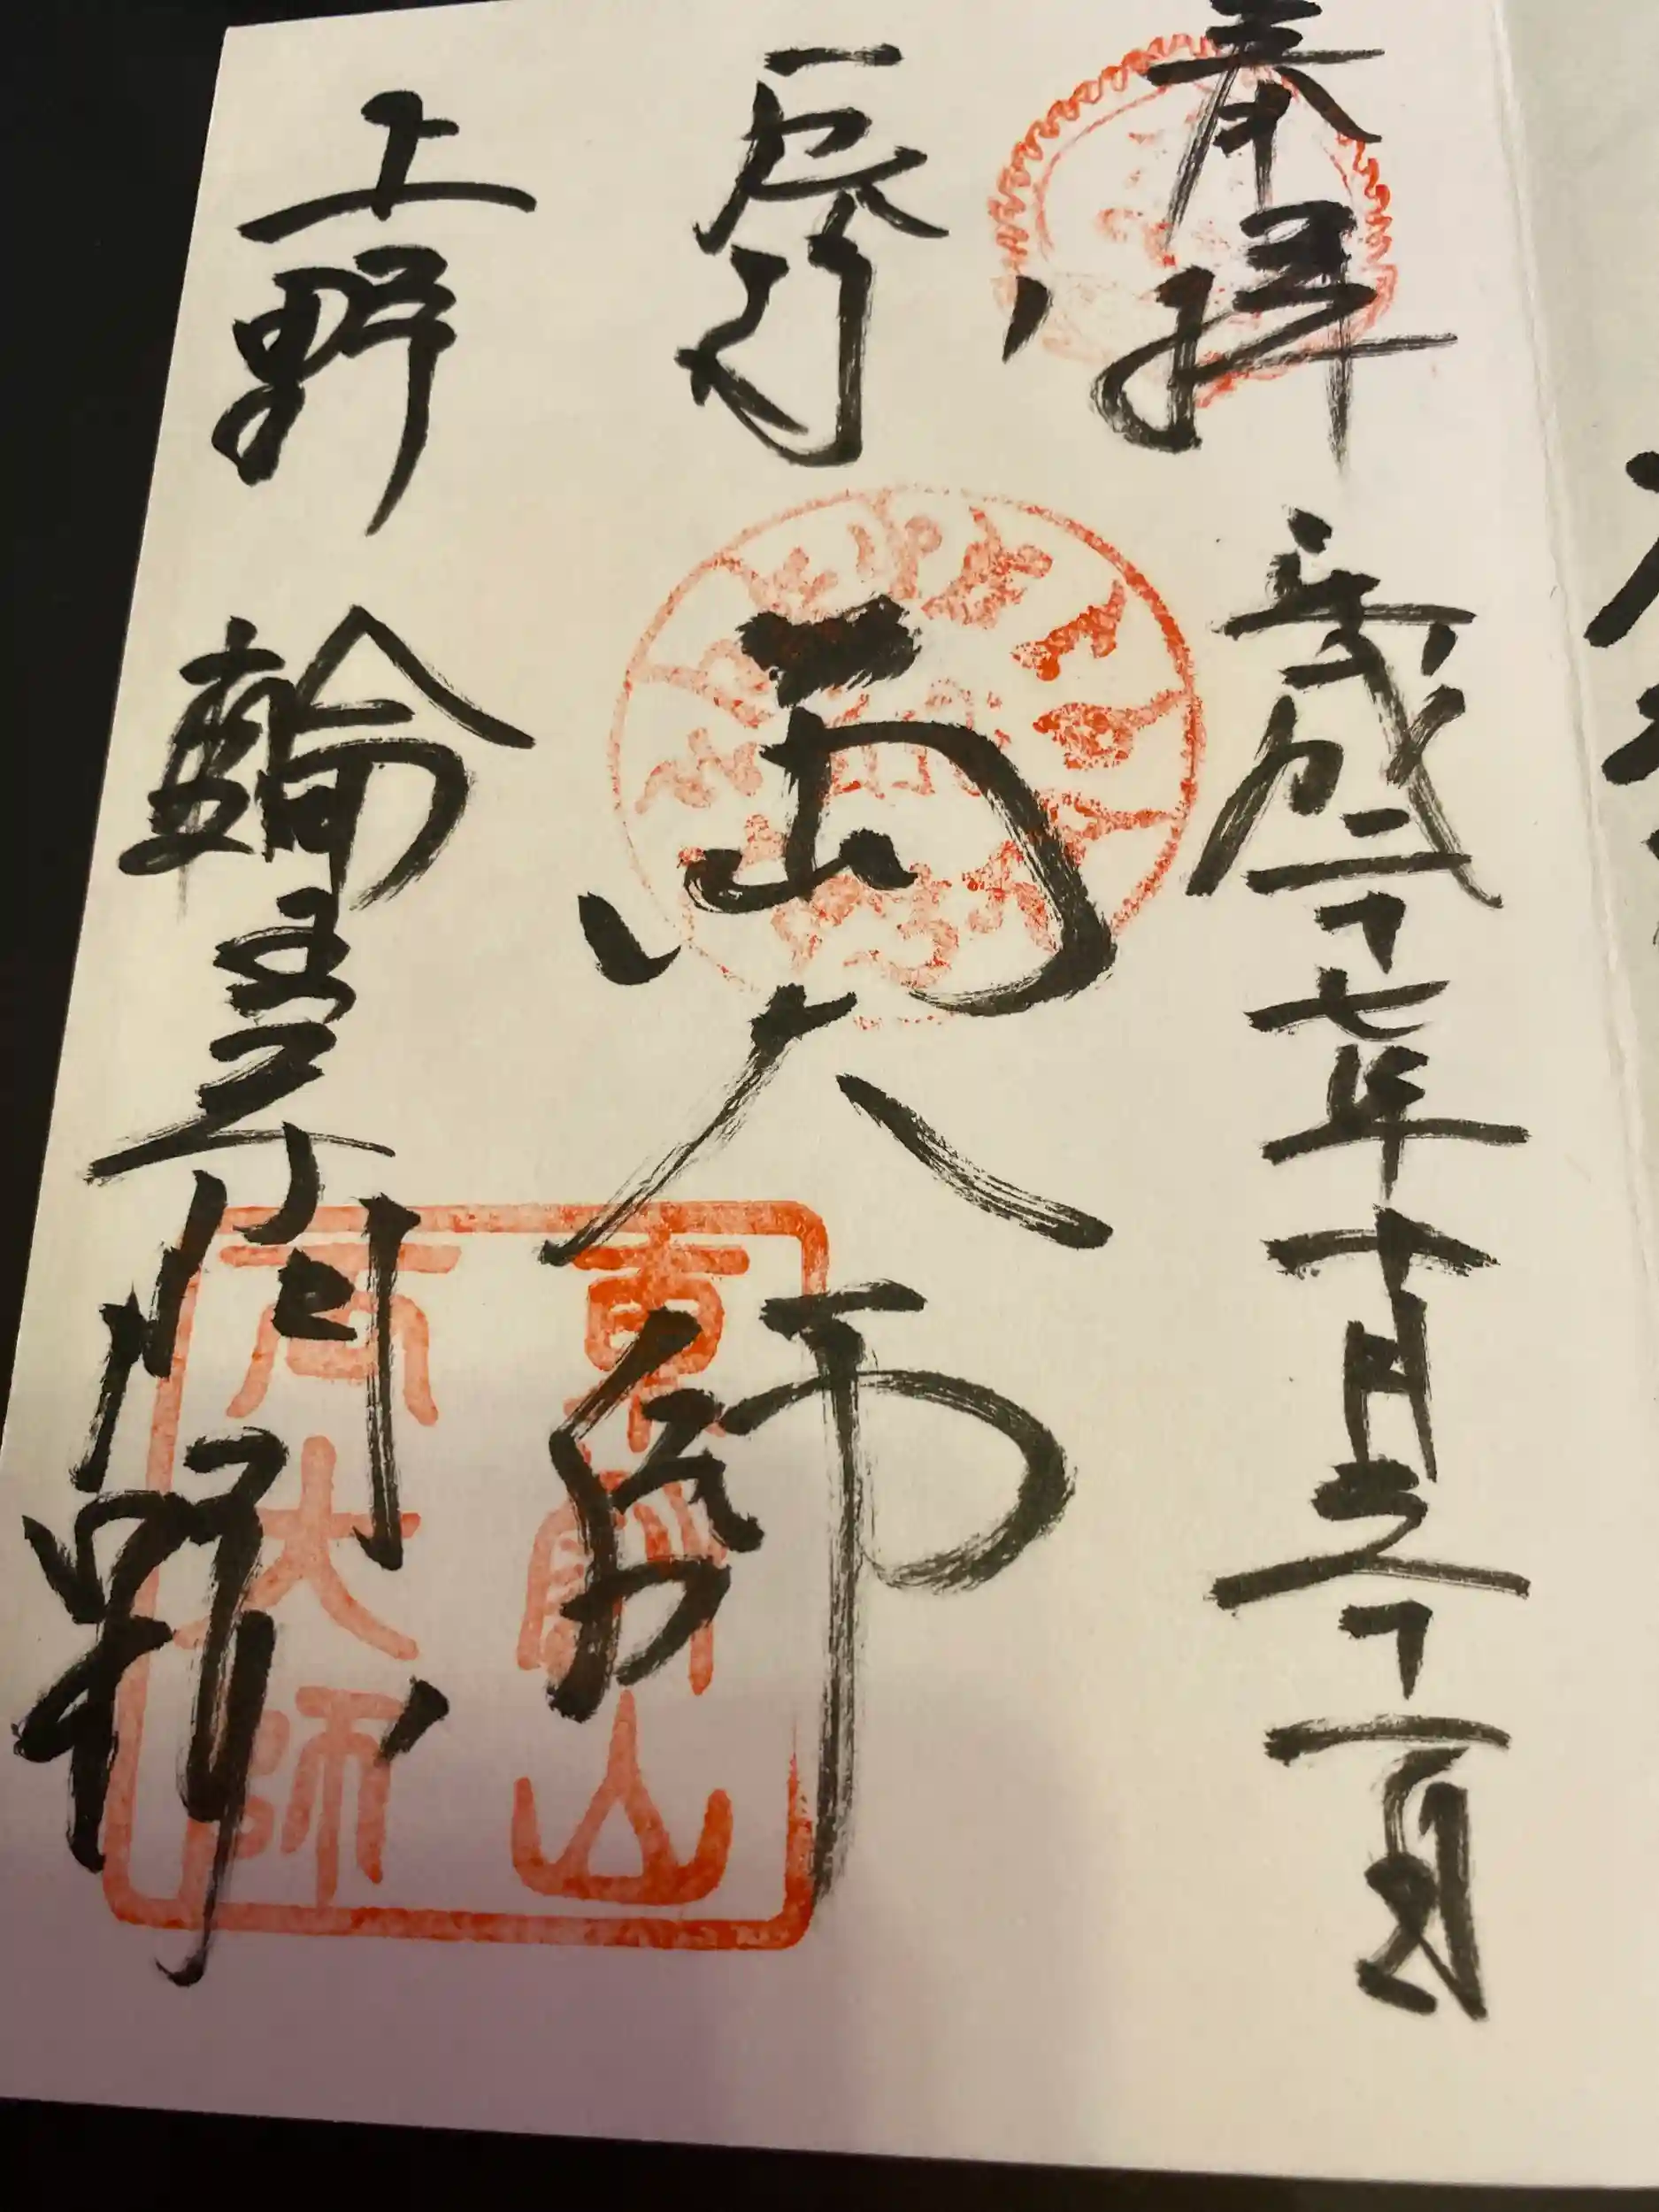 奉拝 平成二十七年十月三十一日
両大師
上野 輪王寺門跡
東叡山
両大師